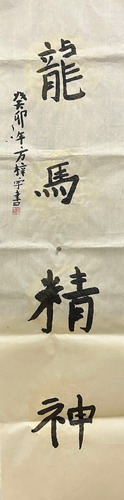 龍馬精神
癸卯年方梓宇書